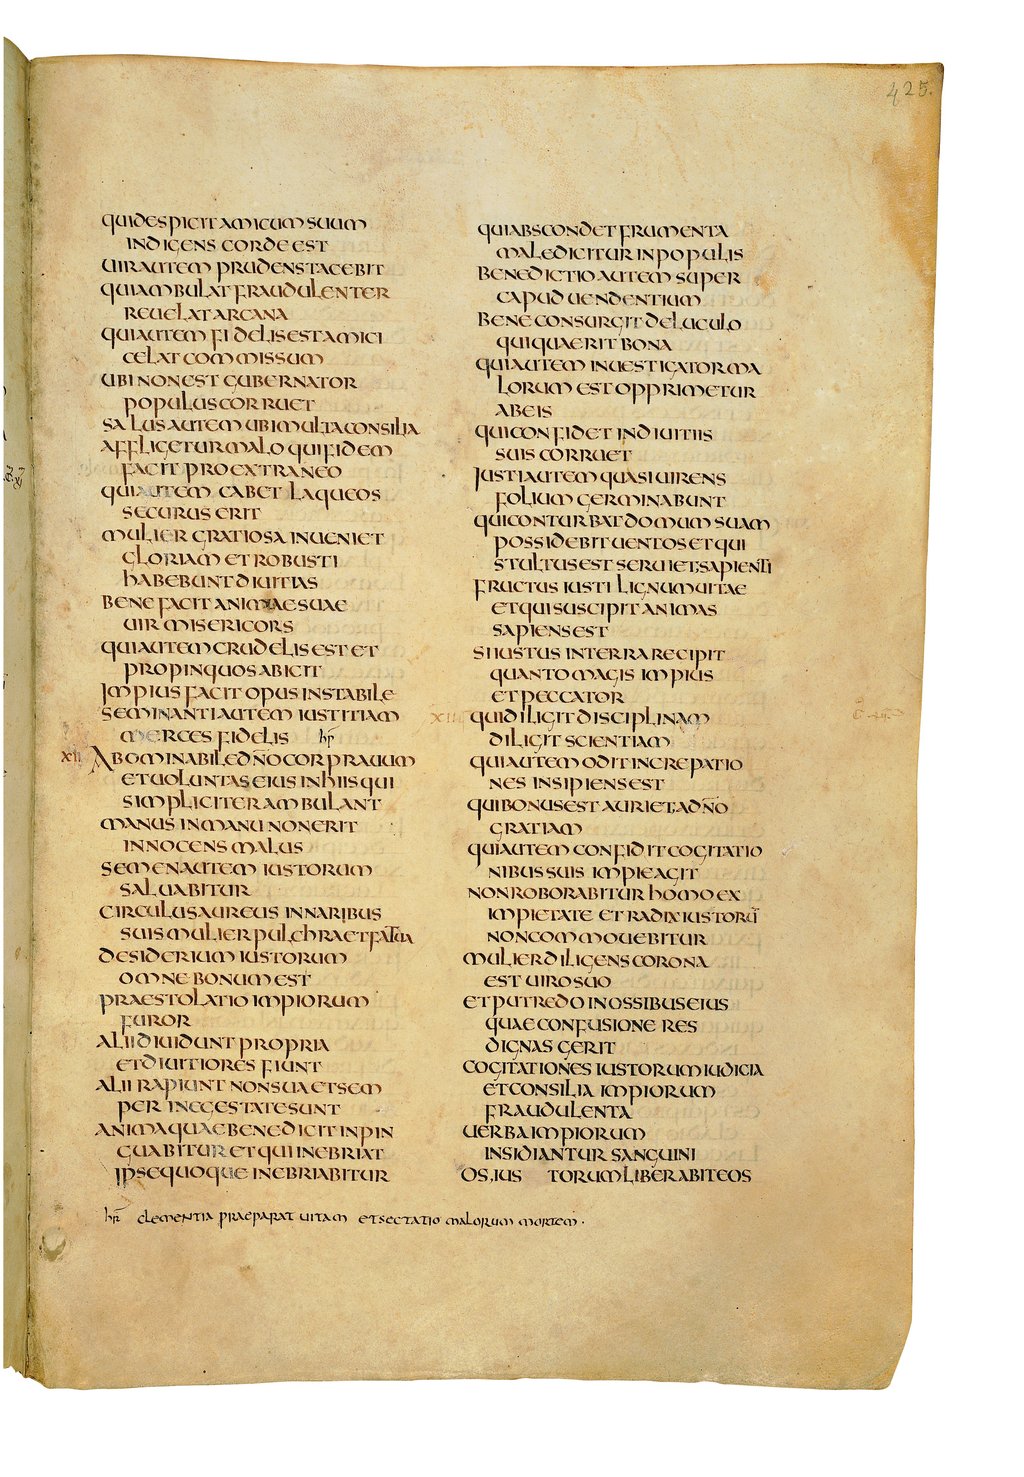 425.
QUI DESPICIT AMICUM SUUM
INDIGENS CORDE EST
UIR AUTEM PRUDENS TACEBIT
QUI AMBULAT FRAUDULENTER
REUELAT ARCANA
QUI AUTEM FIDELIS EST AMICI
CELAT COMMISSUM
UBI NON EST GUBERNATOR
POPULUS CORRUET
SALUS AUTEM UBI MULTA CONSILIA
AFFLIGETUR MALO QUI FIDEM
FACIT PRO EXTRANEO
QUI AUTEM CABET LAQUEOS
SECURUS ERIT
MULIER GRATIOSA INUENIET
GLORIAM ET ROBUSTI
HABEBUNT DIUITIAS
BENEFACIT ANIMAE SUAE
UIR MISERICORS
QUI AUTEM CRUDELIS EST ET
PROPINQUOS ABICIT
IMPIUS FACIT OPUS INSTABILE
SEMINANTI AUTEM IUSTITIAM
MERCES FIDELIS hp̄
XII ABOMINABILE DÑO COR PRAUUM
ET UOLUNTAS EIUS IN HIIS QUI
SIMPLICITER AMBULANT
MANUS IN MANU NON ERIT
INNOCENS MALUS
SEMEN AUTEM IUSTORUM
SALUABITUR
CIRCULUS AUREUS IN NARIBUS
SUIS MULIER PULCHRA ET FATUA
DESIDERIUM IUSTORUM
OMNE BONUM EST
PRAESTOLATIO IMPIORUM
FUROR
ALII DIUIDUNT PROPRIA
ET DIUITIORES FIUNT
ALII RAPIUNT NON SUA ET SEM
PER IN EGESTATE SUNT
ANIMA QUAE BENEDICIT INPIN
GUABITUR ET QUI INEBRIAT
IPSE QUOQUE INEBRIABITUR
hp̄ CLEMENTIA PRAEPARAT UITAM ET SECTATIO MALORUM MORTEM.
QUI ABSCONDET FRUMENTA
MALEDICITUR IN POPULIS
BENEDICTIO AUTEM SUPER
CAPUD UENDENTIUM
BENE CONSURGIT DELUCULO
QUI QUAERIT BONA
QUI AUTEM INUESTIGATOR MA
LORUM EST OPPRIMETUR
AB EIS
QUI CONFIDET IN DIUITIIS
SUIS CORRUET
IUSTI AUTEM QUASI UIRENS
FOLIUM GERMINABUNT
QUI CONTURBAT DOMUM SUAM
POSSIDEBIT UENTOS ET QUI
STULTUS EST SERUIET SAPIENTI
FRUCTUS IUSTI LIGNUM UITAE
ET QUI SUSCIPIT ANIMAS
SAPIENS EST
SI IUSTUS IN TERRA RECIPIT
QUANTO MAGIS IMPIUS
ET PECCATOR
XIII QUI DILIGIT DISCIPLINAM
DILIGIT SCIENTIAM
QUI AUTEM ODIT INCREPATIO
NES INSIPIENS EST
QUI BONUS EST AURIET, A DÑO
GRATIAM
QUI AUTEM CONFIDIT COGITATIO
NIBUS SUIS IMPIE AGIT
NON ROBORABITUR HOMO EX
IMPIETATE ET RADIX IUSTORŪ
NON COMMOUEBITUR
MULIER DILIGENS CORONA
EST UIRO SUO
ET PUTREDO IN OSSIBUS EIUS
QUAE CONFUSIONE RES
DIGNAS GERIT
COGITATIONES IUSTORUM IUDICIA
ET CONSILIA IMPIORUM
FRAUDULENTA
UERBA IMPIORUM
INSIDIANTUR SANGUINI
OS, IUS TORUM LIBERABIT EOS